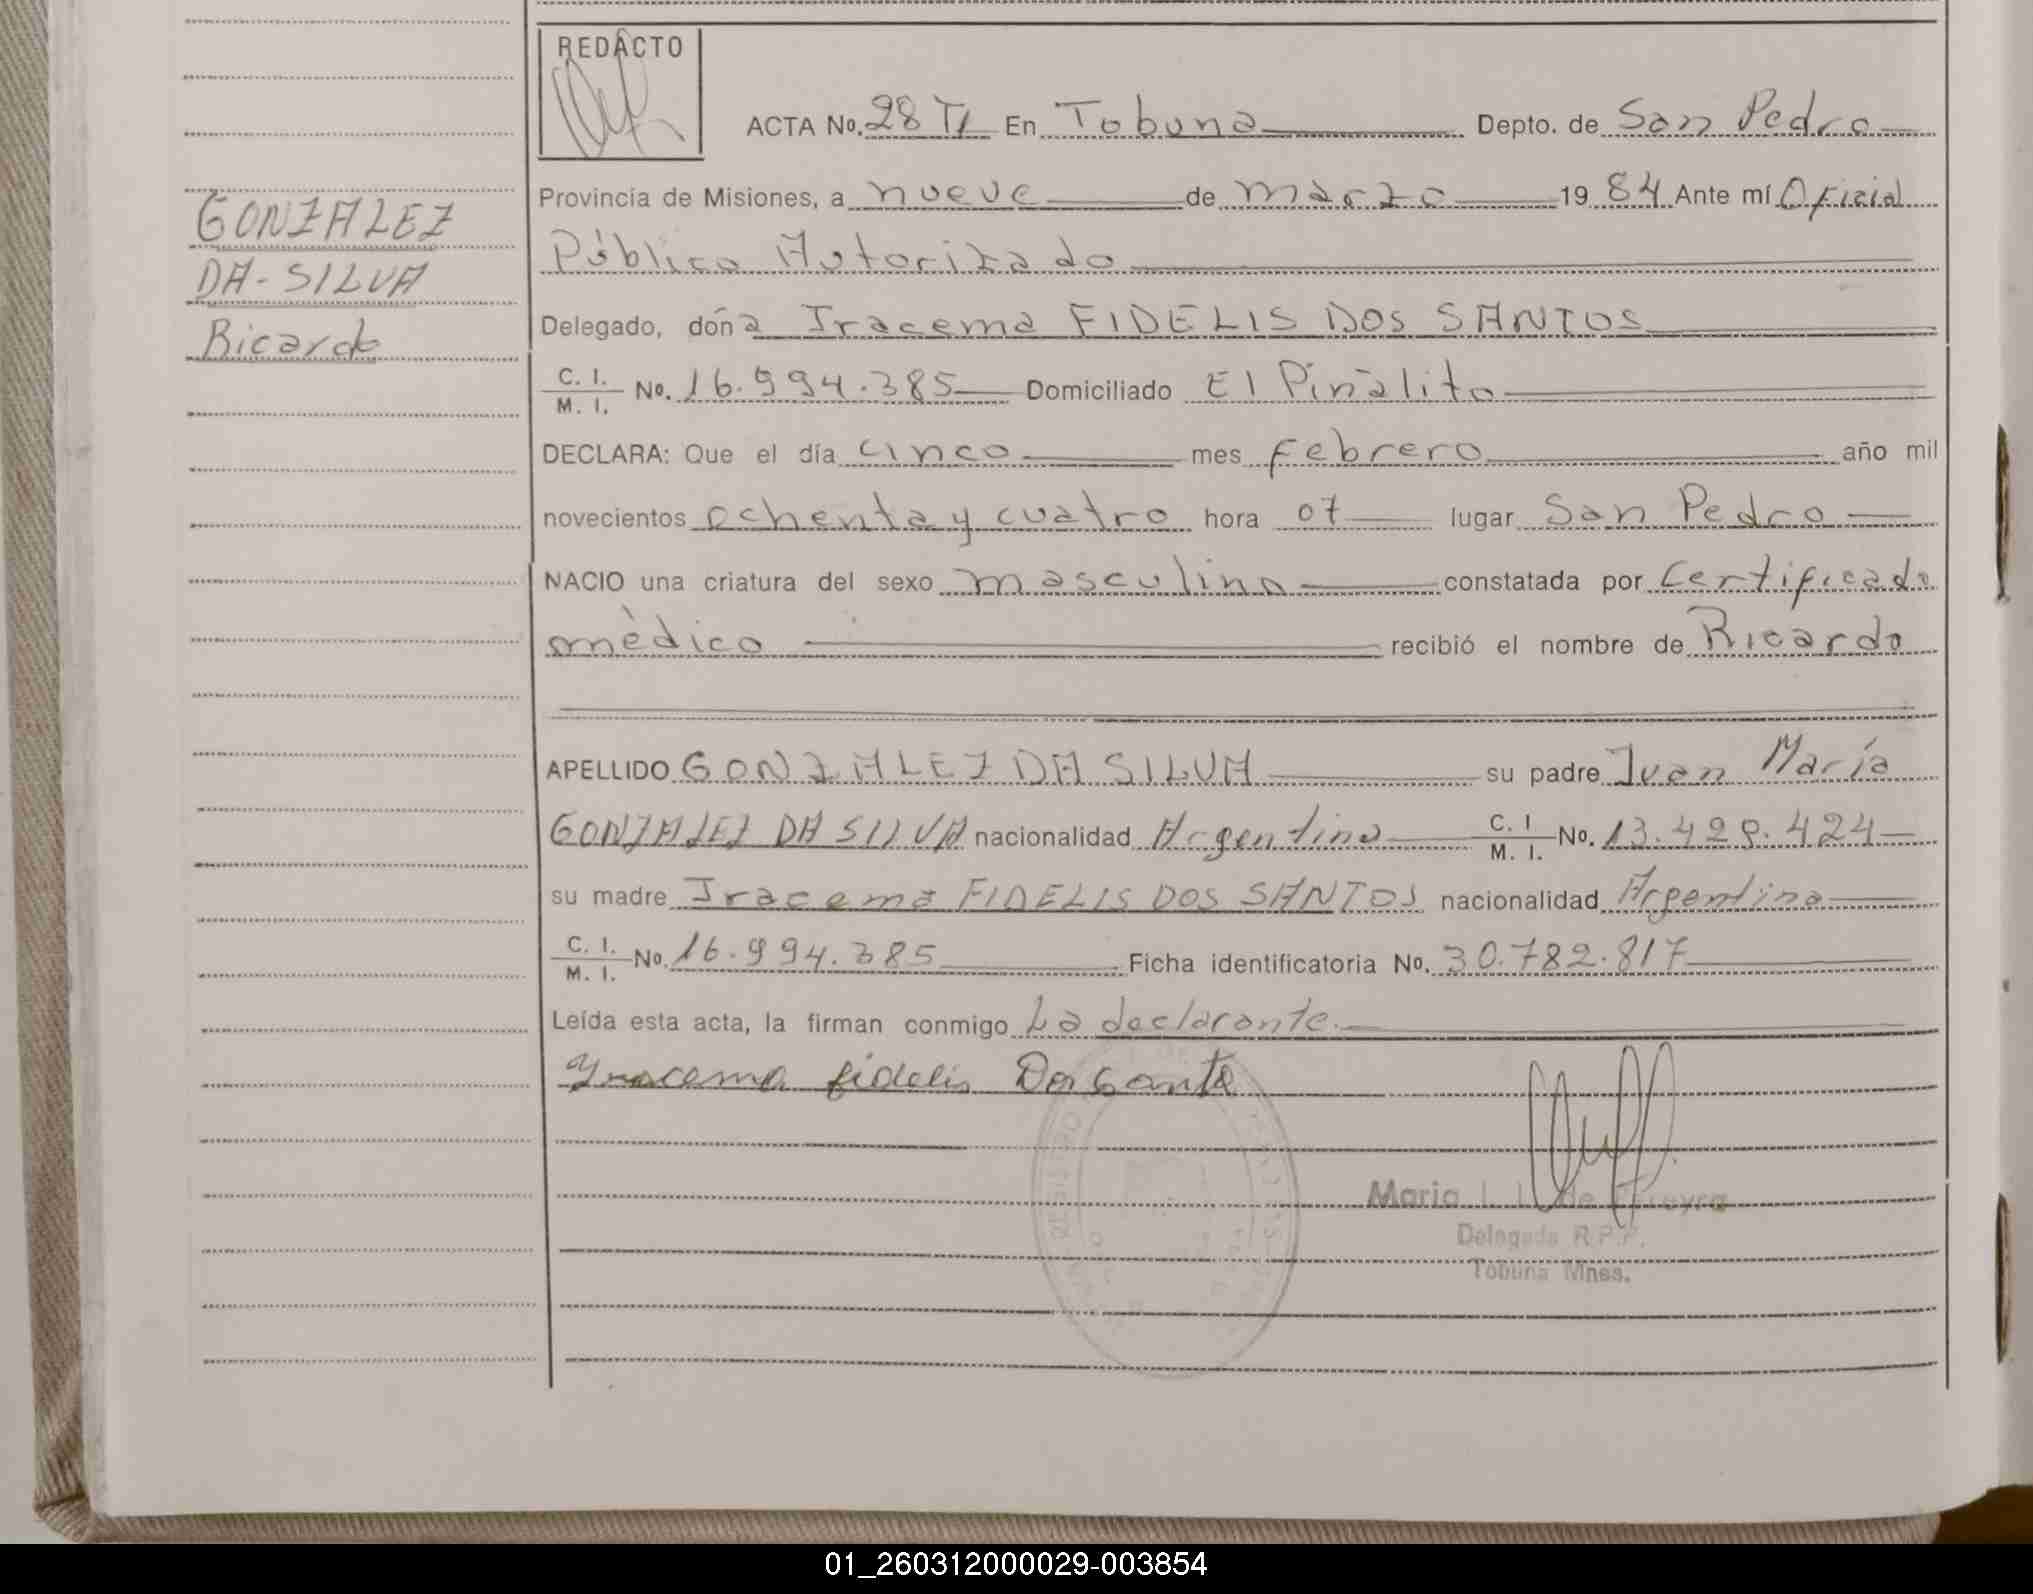 REDACTO
ACTA No. 28 TI En Tobuna Depto. de San Pedro
Provincia de Misiones, a nueve de marzo 19 84 Ante mí Oficial
Público Autorizado
GONZALEZ
DA-SILVA
Ricardo
Delegado, doña Iracema FIDELIS DOS SANTOS
C. I. / M. I. No. 16.994.385 Domiciliado El Piñalito
DECLARA: Que el día cinco mes febrero año mil
novecientos ochenta y cuatro hora 07 lugar San Pedro
NACIO una criatura del sexo masculino constatada por Certificado
mèdico recibió el nombre de Ricardo
APELLIDO GONZALEZ DA SILVA su padre Juan María
GONZALEZ DA SILVA nacionalidad Argentina C. I / M. I. No. 13.429.424
su madre Iracema FIDELIS DOS SANTOS nacionalidad Argentina
C. I. / M. I. No. 16.994.385 Ficha identificatoria No. 30.782.817
Leída esta acta, la firman conmigo La declarante.
Iracema fidelis Dos Santo
Maria I. L. de Pereyra
Delegada R.P.P.
Tobuna Mnes.
01_260312000029-003854